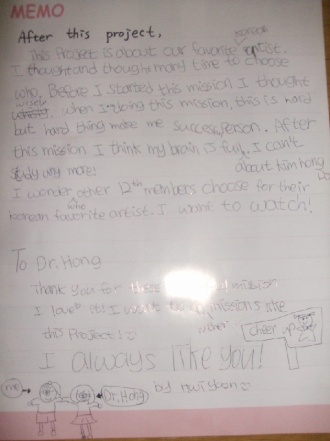 MEMO
After this project,
This Project is about our favorite korean artist.
I thought and thought many time to choose
who. Before I started this mission I thought
when I doing this mission, this is hard
but hard thing make me success person. After
this mission I think my brain is full, I can't
study any more! about kim hong Do
I wonder other 12th members choose for their
korean favorite artist. I want to watch!
To Dr. Hong
Thank you for these mission
I love it! I want to missions like
this project!
cheer up
I always like you!
by hwi yeon
me Dr. Hong